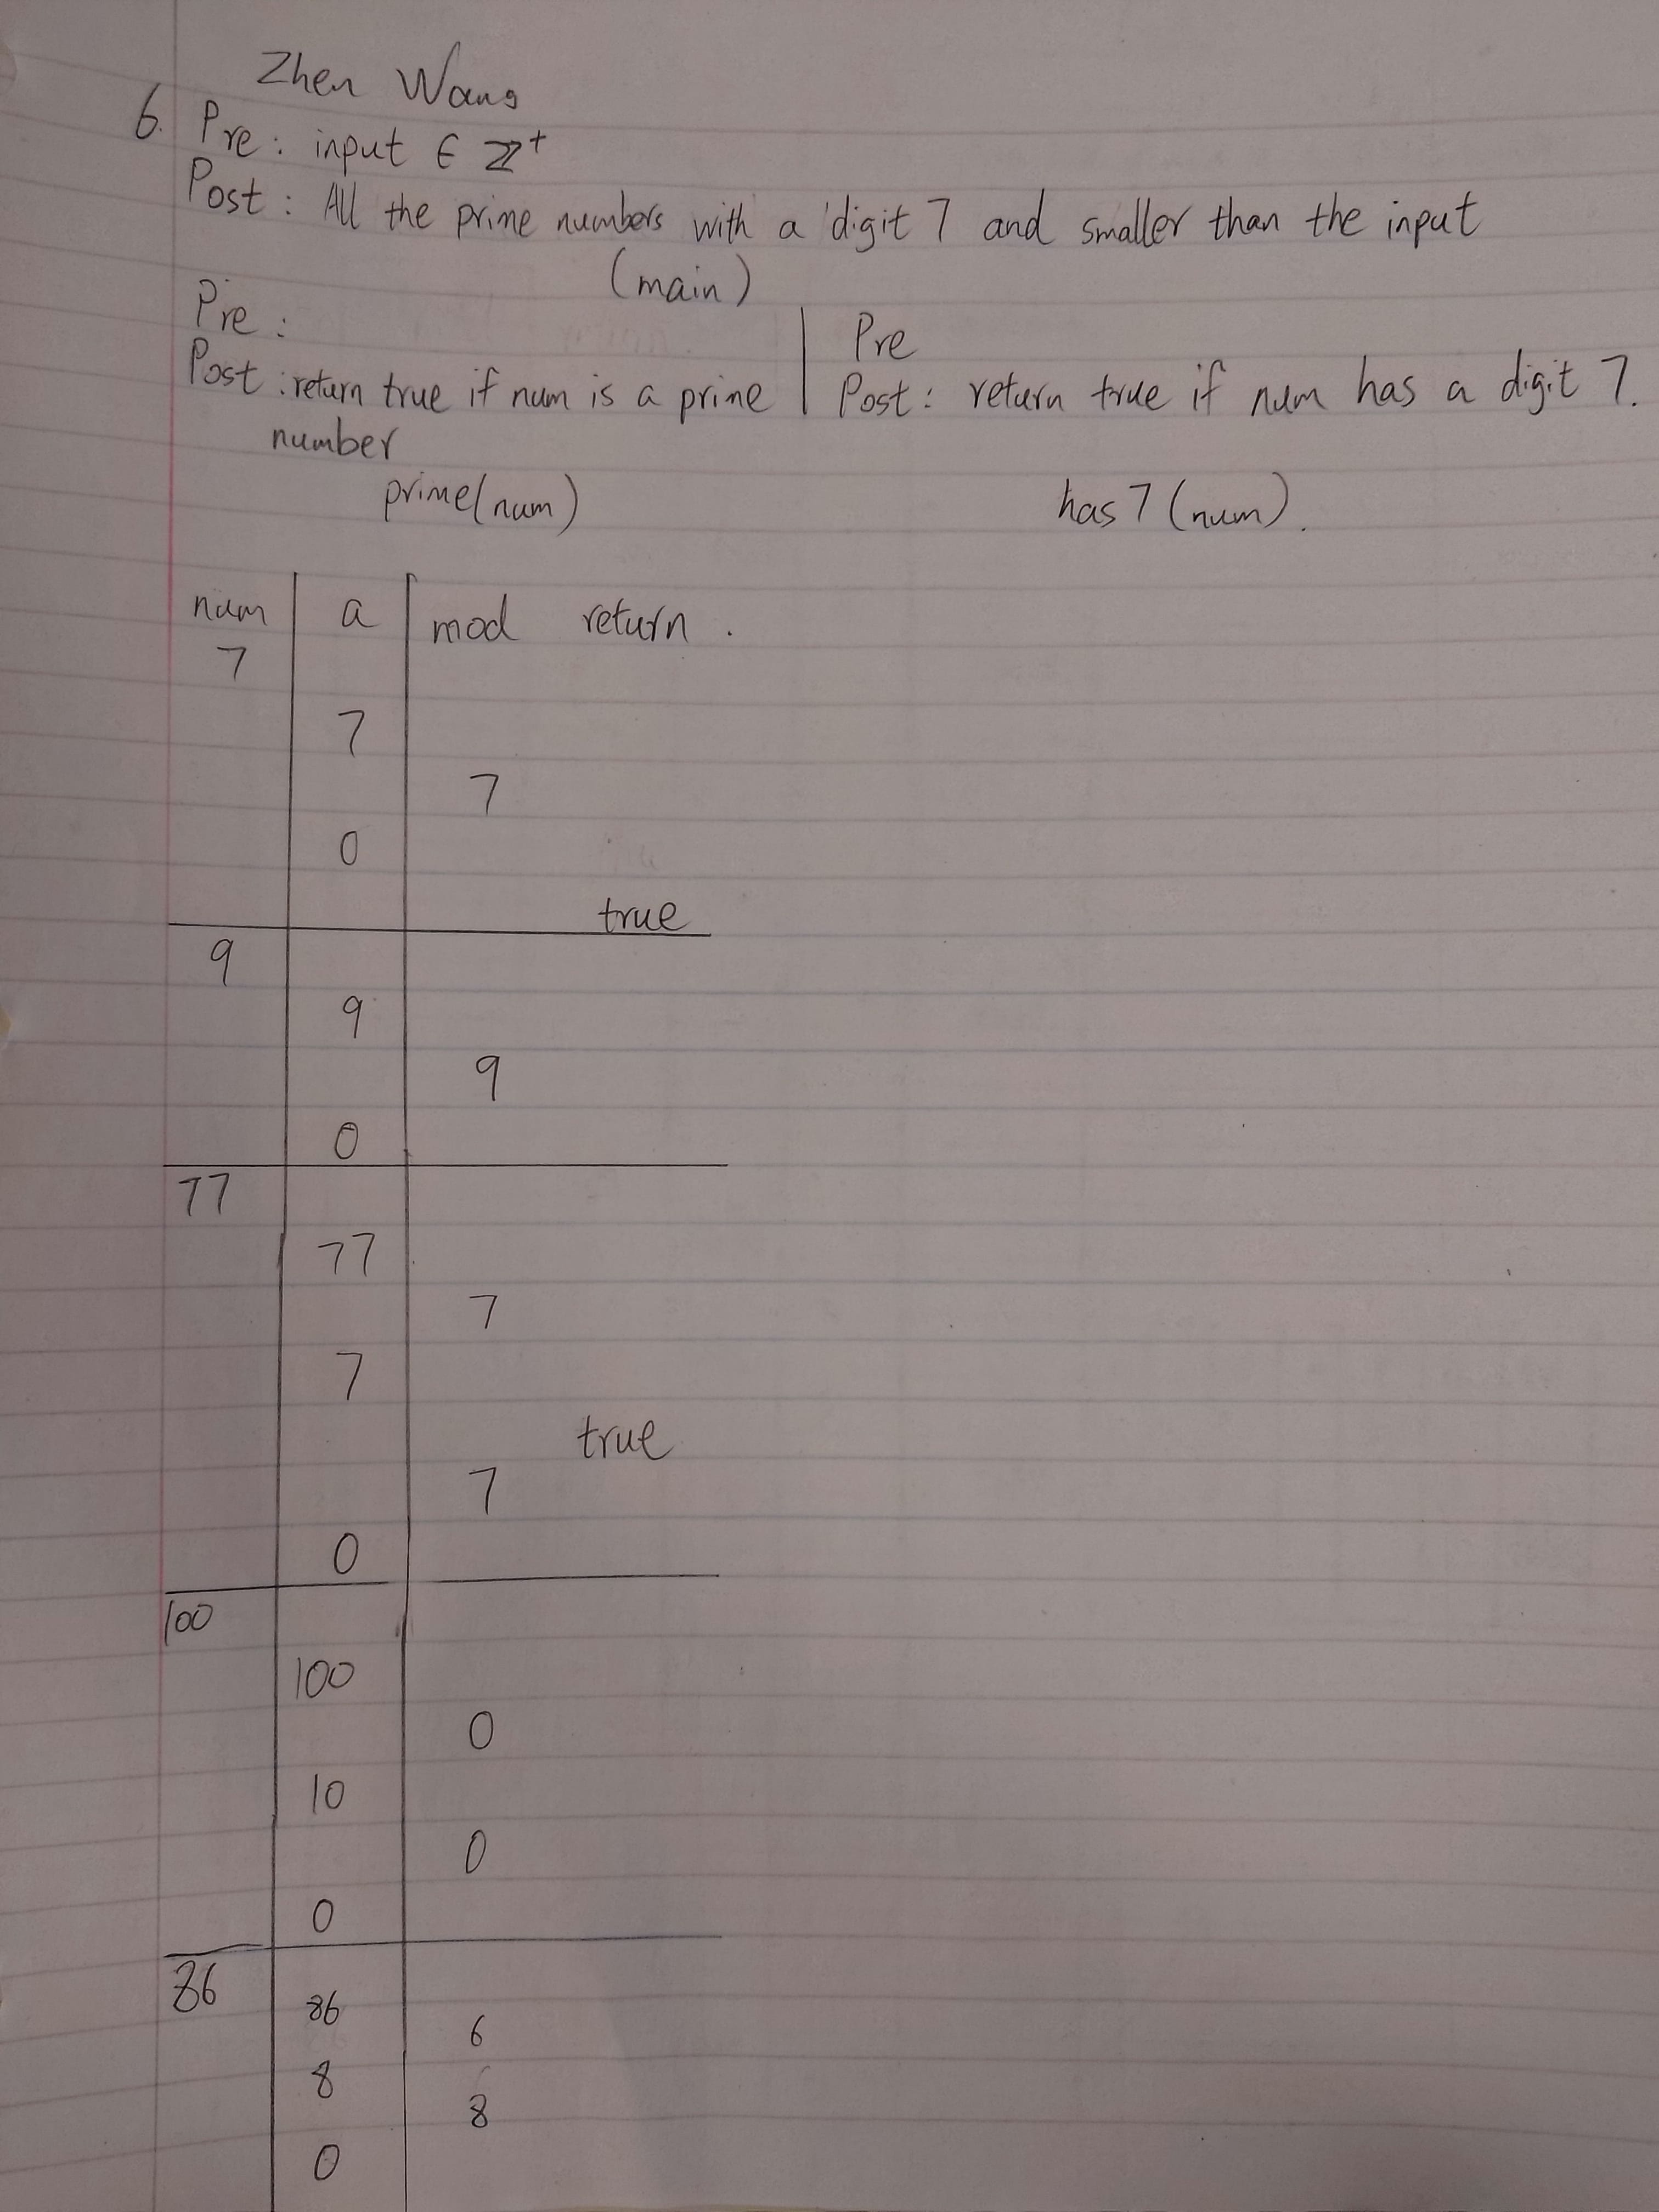 Zhen Wang
6. Pre: input ∈ ℤ⁺
Post: All the prime numbers with a digit 7 and smaller than the input
(main)
Pre:
Post: return true if num is a prime
number
prime(num)
Pre
Post: return true if num has a digit 7.
has 7 (num).
num a mod return.
7
7
7
0
true
9
9
9
0
77
77
7
7
true
7
0
100
100
0
10
0
0
86
86
6
8
8
0